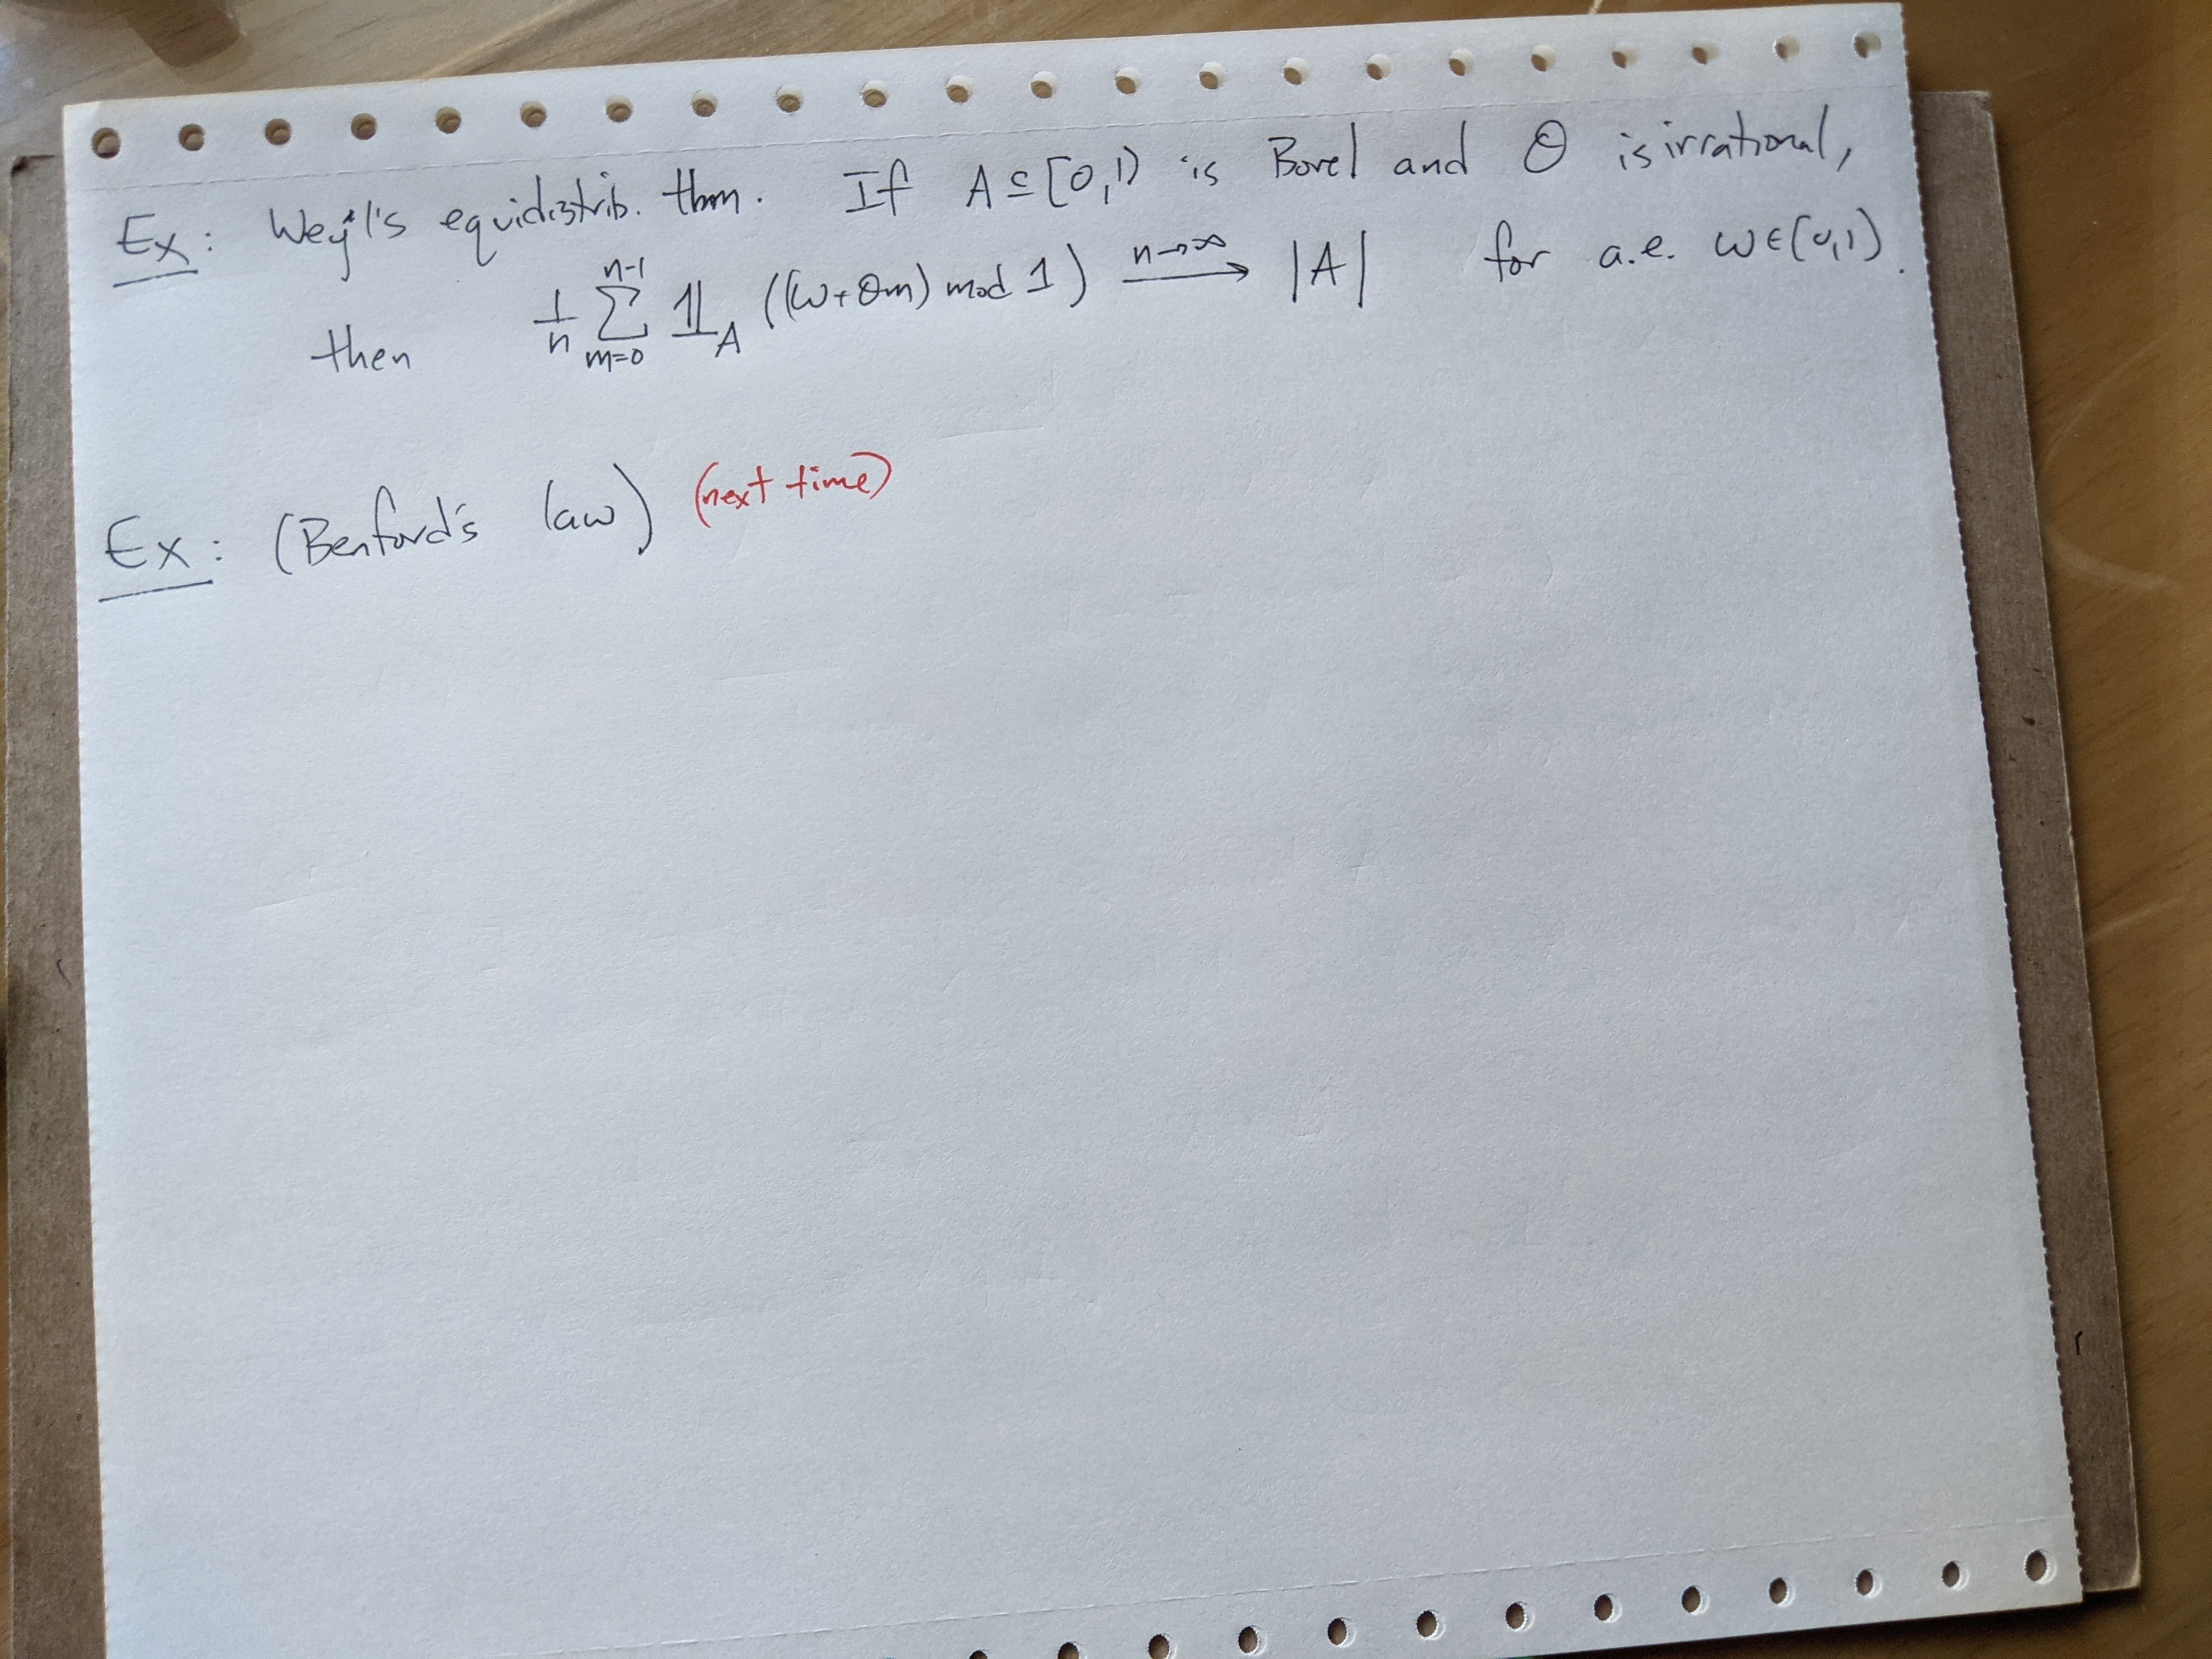 Ex: Weyl's equidistrib. thm. If A ⊆ [0,1) is Borel and θ is irrational,
then 1/n ∑_{m=0}^{n-1} 𝟙_A ((ω+θm) mod 1) →^{n→∞} |A| for a.e. ω∈[0,1).
Ex: (Benford's law) (next time)